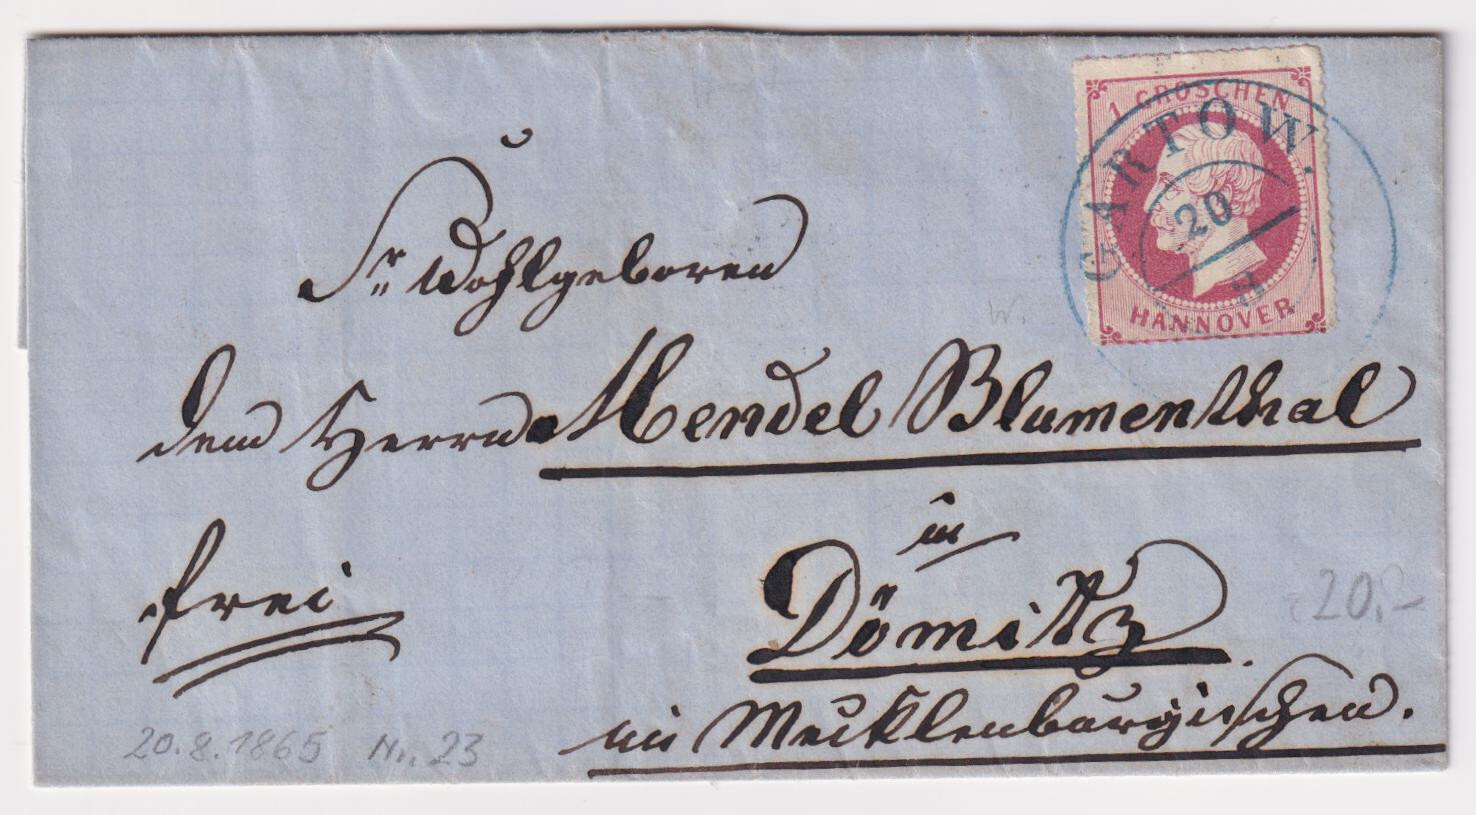 1 GROSCHEN
HANNOVER
GARTOW.
20
8
Sr Wohlgeboren
dem Herrn Mendel Blumenthal
in
Dömitz
frei
im Mecklenburgischen.
W.
20.-
20.8.1865 Nr. 23